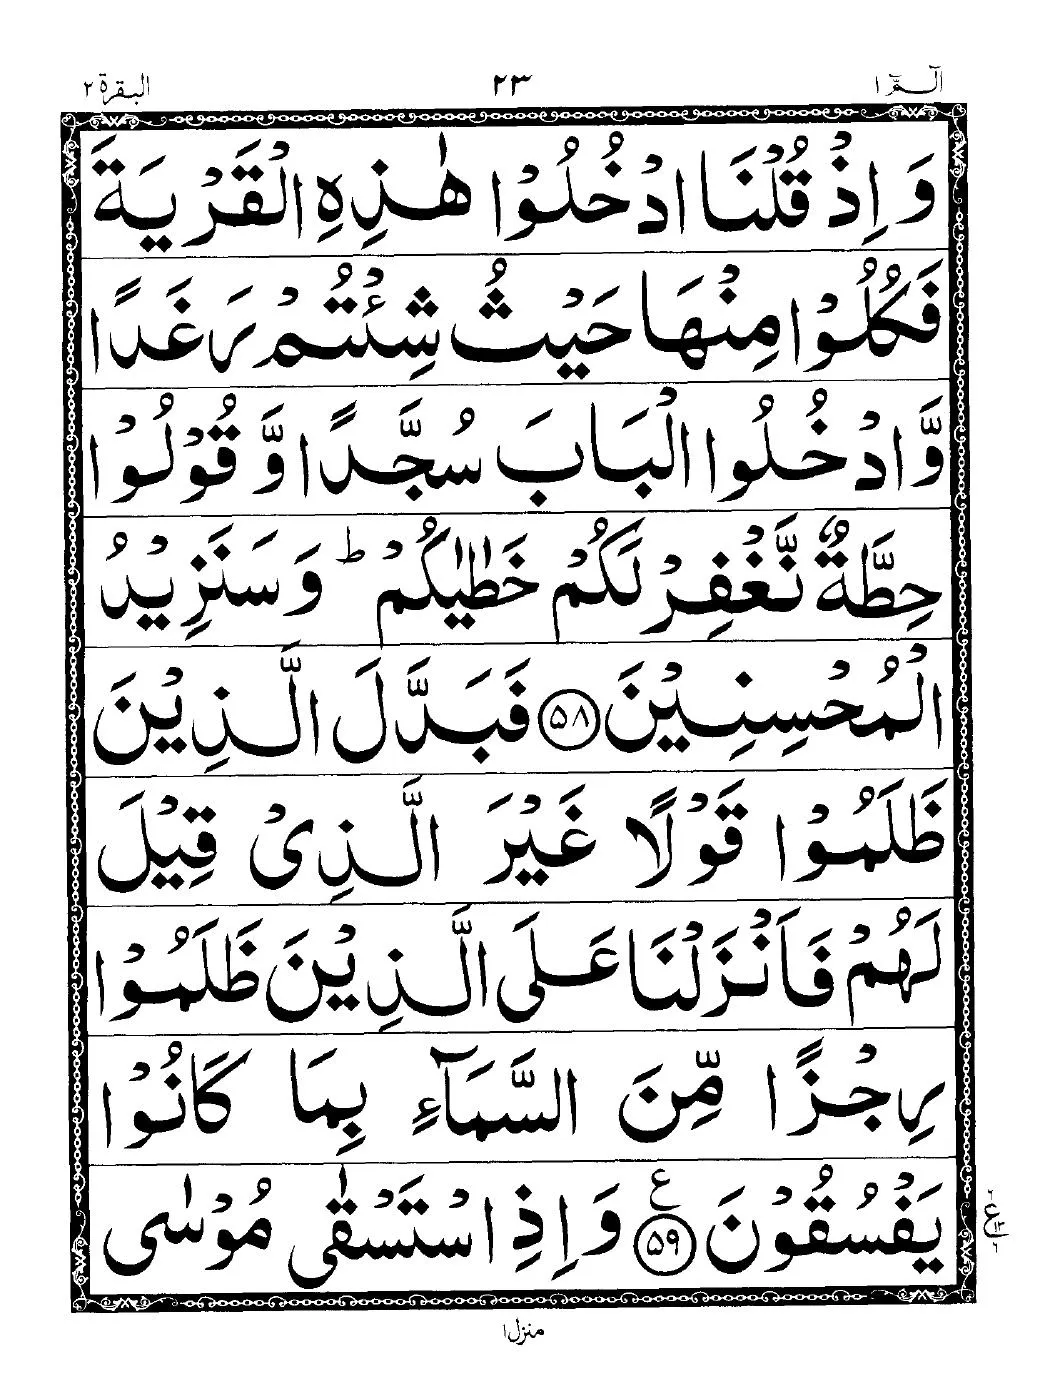 الٓمّٓ ١
٢٣
البقرة ٢
وَاِذْ قُلْنَا ادْخُلُوْا هٰذِهِ الْقَرْيَةَ
فَكُلُوْا مِنْهَا حَيْثُ شِئْتُمْ رَغَدًا
وَّادْخُلُوا الْبَابَ سُجَّدًا وَّقُوْلُوْا
حِطَّةٌ نَّغْفِرْ لَكُمْ خَطٰيٰكُمْ ؕ وَسَنَزِيْدُ
الْمُحْسِنِيْنَ ۝٥٨ فَبَدَّلَ الَّذِيْنَ
ظَلَمُوْا قَوْلًا غَيْرَ الَّذِىْ قِيْلَ
لَهُمْ فَاَنْزَلْنَا عَلَى الَّذِيْنَ ظَلَمُوْا
رِجْزًا مِّنَ السَّمَآءِ بِمَا كَانُوْا
يَفْسُقُوْنَ ۝٥٩ ع وَاِذِ اسْتَسْقٰى مُوْسٰى
ع
منزل ١